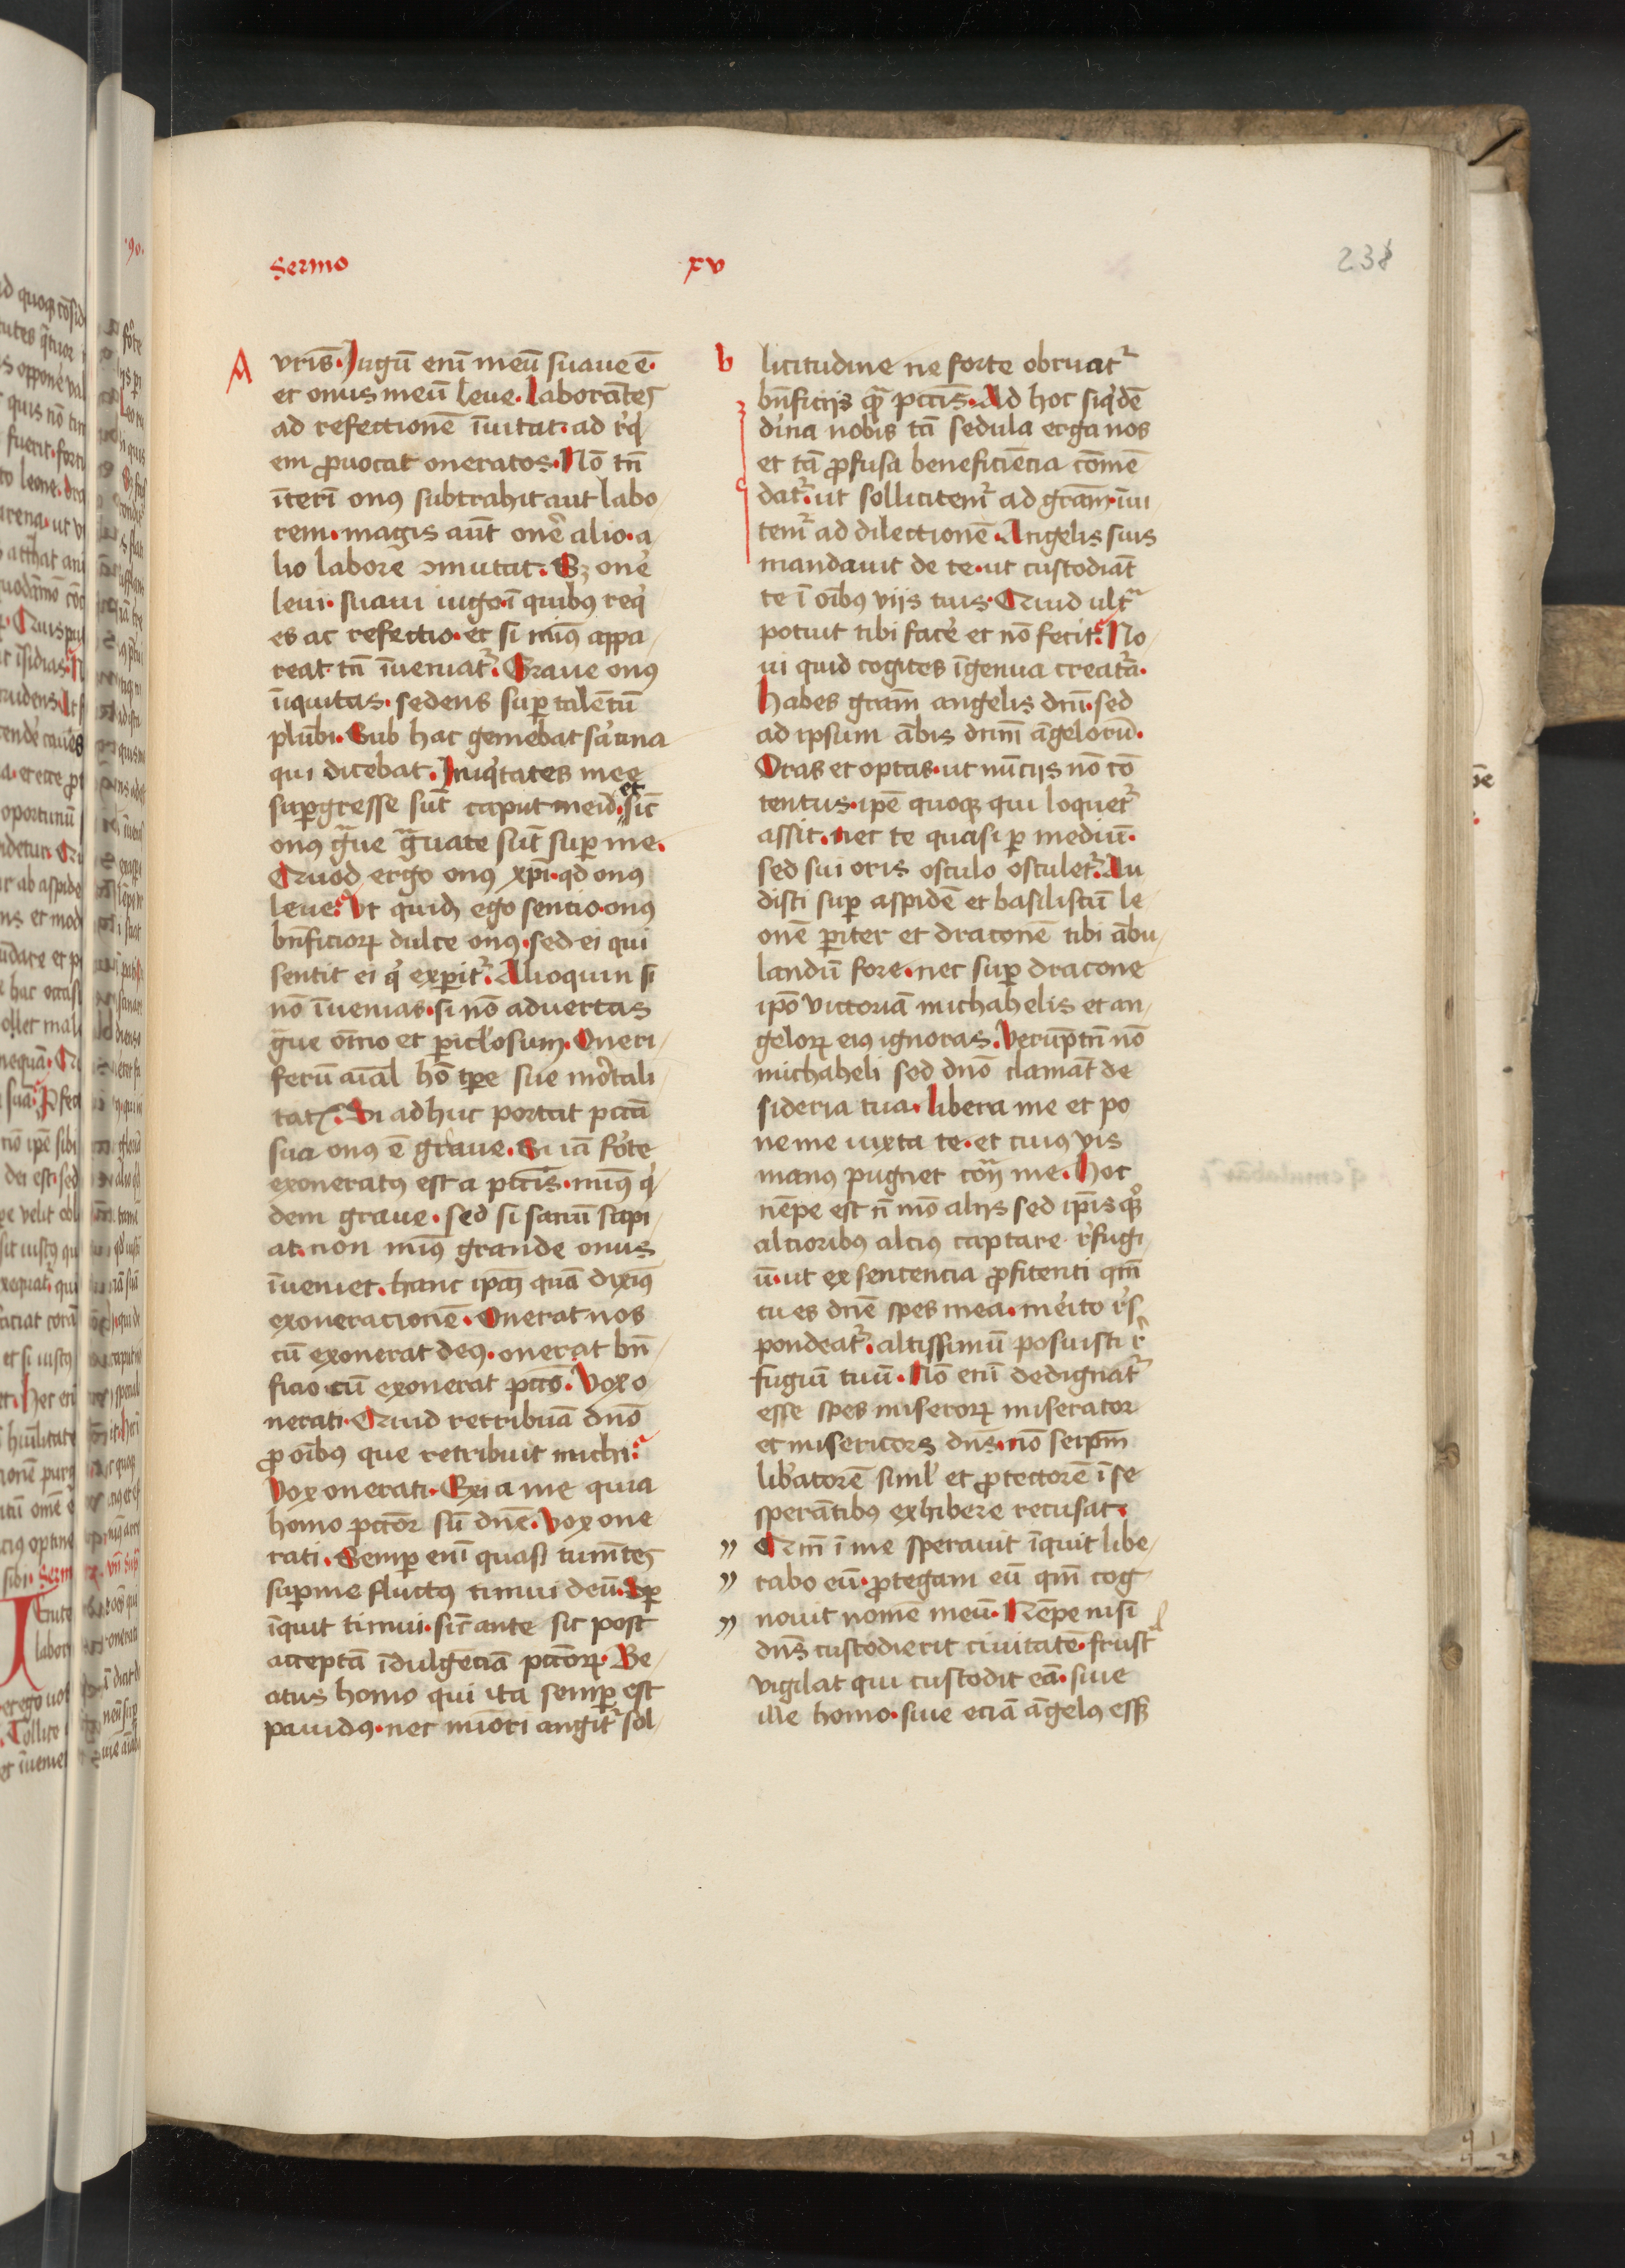 Sermo xv
238
A
vris̄. Jugū enī meū suaue ē.
et onus meū leue. Laborātes
ad refectionē īuitat. ad rͥq̄
em ꝓuocat oneratos. Nō tn̄
īterī onꝰ subtrahit aut labo
rem. magis aūt onē alio. a
lio labore ↄmutat. Sꝫ onē
leui. suaui iugo. ī quibꝰ req̄
es ac refectio. et si minꝰ appa
reat. tn̄ īueniatᷣ. Graue onꝰ
īiquitas. sedens suꝑ talētū
plūbi. Sub hac gemebat sarcina
qui dicebat. Iniqͥtates mee
suꝑgresse sūt caput meū. et sic̄
onꝰ gͣue gͣuate sūt suꝑ me.
Quod ergo onꝰ xp̄i. qd onꝰ
leue. Vt quid ego sentio. onꝰ
bn̄ficioꝝ dulce onꝰ. sed ei qui
sentit ei qͥ exꝑitᷣ. Alioquin si
nō īuenias. si nō aduertas
gͣue om̄io et ꝑicl'osum. Oneri
ferū aīal hō tꝑe sue mortali
tatꝭ. Si adhuc portat pctā
sua onꝰ ē graue. Si iā forte
exoneratꝰ est a pctīs. minꝰ qͥ
dem graue. sed si sanū sapi
at. non minꝰ grande onus
īueniet. hanc ip̄am quā diximꝰ
exoneracionē. Onerat nos
cū exonerat deꝰ. onerat bn̄
ficio. cū exonerat pctō. Vox o
nerati. Quid retribuā dn̄o
ꝓ oībus que retribuit michi.
Vox onerati. Exi a me quia
homo pctōr sū dn̄e. Vox one
rati. Semꝑ enī quasi tumētes
suꝑ me fluctꝰ timui deū. Semꝑ
īquit timui. sic̄ ante sic post
acceptā īdulgēciā pctōrꝝ. Be
atus homo qui ita semꝑ est
pauidꝰ. nec minori angitᷣ sol
b
licitudine ne forte obruatᷣ
bn̄ficijs quā pctīs. Ad hoc siqͥdē
diuina nobis tā sedula erga nos
et tā ꝓfusa beneficiēcia cōmē
datᷣ. ut sollicitemᷣ ad grām. īui
temᷣ ad dilectionē. Angelis suis
mandauit de te. ut custodiāt
te ī oībus viis tuis. Quid ultͣ
potuit tibi facē et nō fecit. No
ui quid cogites īgenua creatͣa.
Habes grām angelis dn̄i. sed
ad ipsum ābis dn̄m āgelorū.
Oras et optas. ut nūcijs nō cō
tentus. ip̄e quoqꝫ qui loquetᷣ
assit. nec te quasi ꝑ mediū.
sed sui oris osculo osculetᷣ. Au
disti suꝑ aspidē et basiliscū le
onē ꝑiter et draconē tibi ābu
landū fore. nec suꝑ dracone
ip̄o victoriā michahelis et an
geloꝝ eiꝰ ignoras. Verūptn̄ nō
michaheli sed dn̄o clamāt de
sideria tua. Libera me et po
ne me iuxta te. et cuiꝰ vis
manꝰ pugnet cont̄ me. Hoc
nēpe est n̄ mō aliis sed ip̄is qͦꝫ
alcioribꝰ alciꝰ captare rͥfugi
ū. ut ex sentencia ꝓfitenti qm̄
tu es dn̄e spes mea. meito rͥs
pondeatᷣ. altissimū posuisti rͥ
fugiū tuū. Nō enī dedignatᷣ
esse spes miseroꝝ miserator
et misericors dn̄s. nō seip̄m
lib̄atorē siml' et ꝓtectorē ī se
sperātibꝰ exhibere recusat.
" Qm̄ ī me sperauit īquit libe
" rabo eū. ꝓtegam eū qm̄ cog
" nouit nomē meū. Nēpe nisi
dn̄s custodierit ciuitatē. frustͣ
vigilat qui custodit eā. siue
ille homo. siue eciā āgelꝰ essꝫ